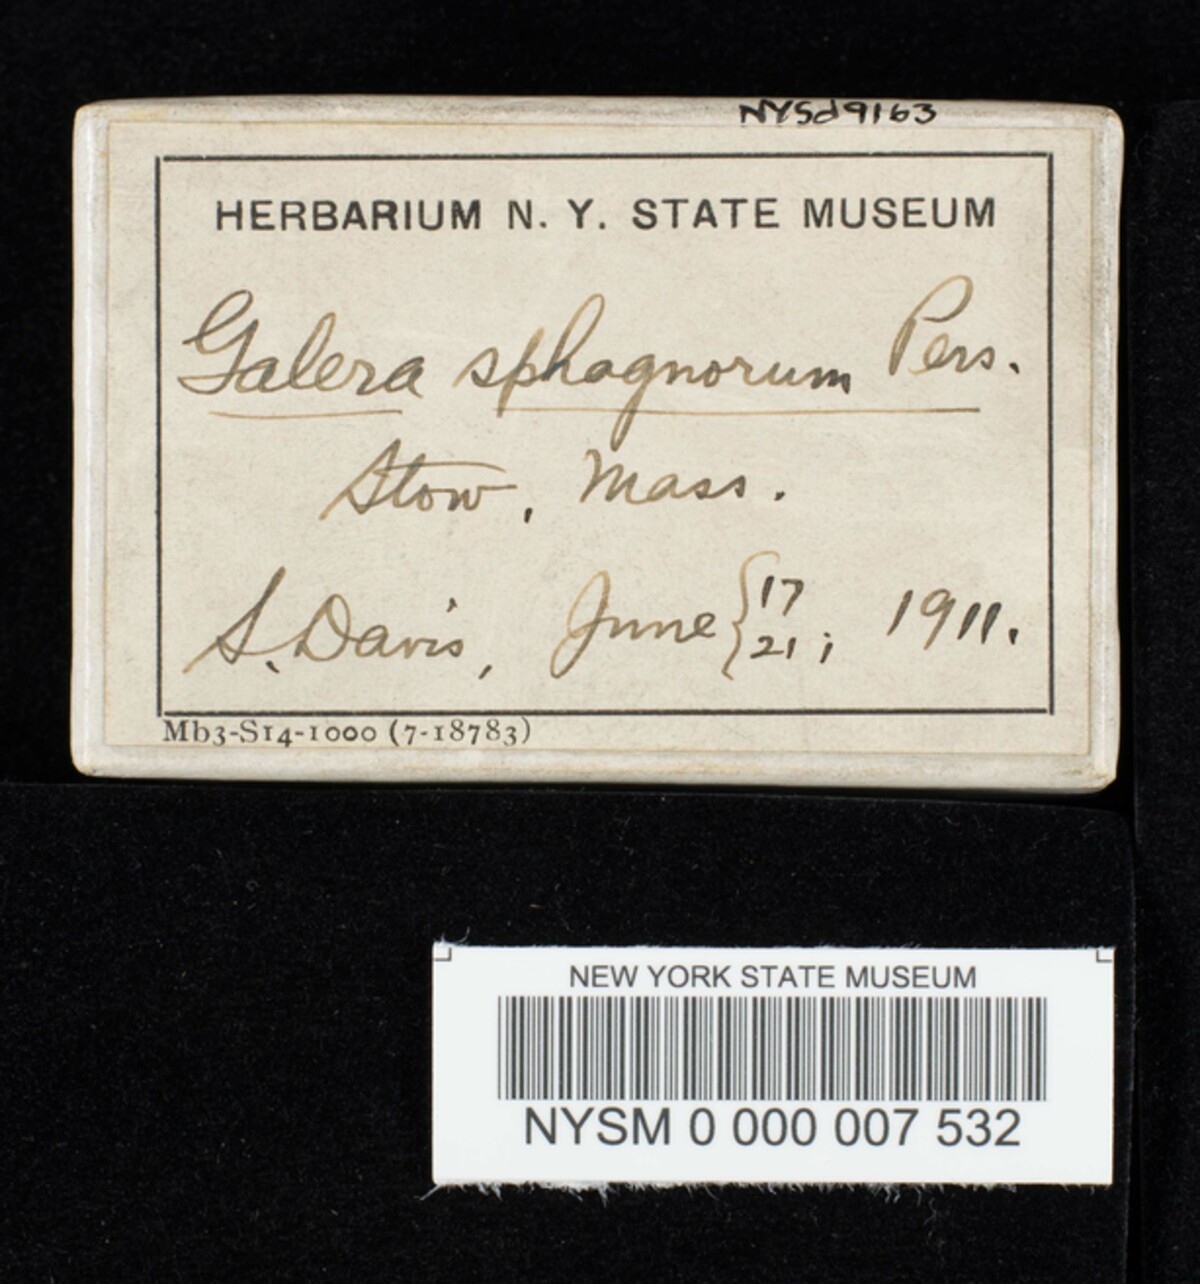 NYSd9163
HERBARIUM N. Y. STATE MUSEUM
Galera sphagnorum Pers.
Stow, Mass.
S. Davis, June { 17 21 ; 1911.
Mb3-S14-1000 (7-18783)
NEW YORK STATE MUSEUM
NYSM 0 000 007 532